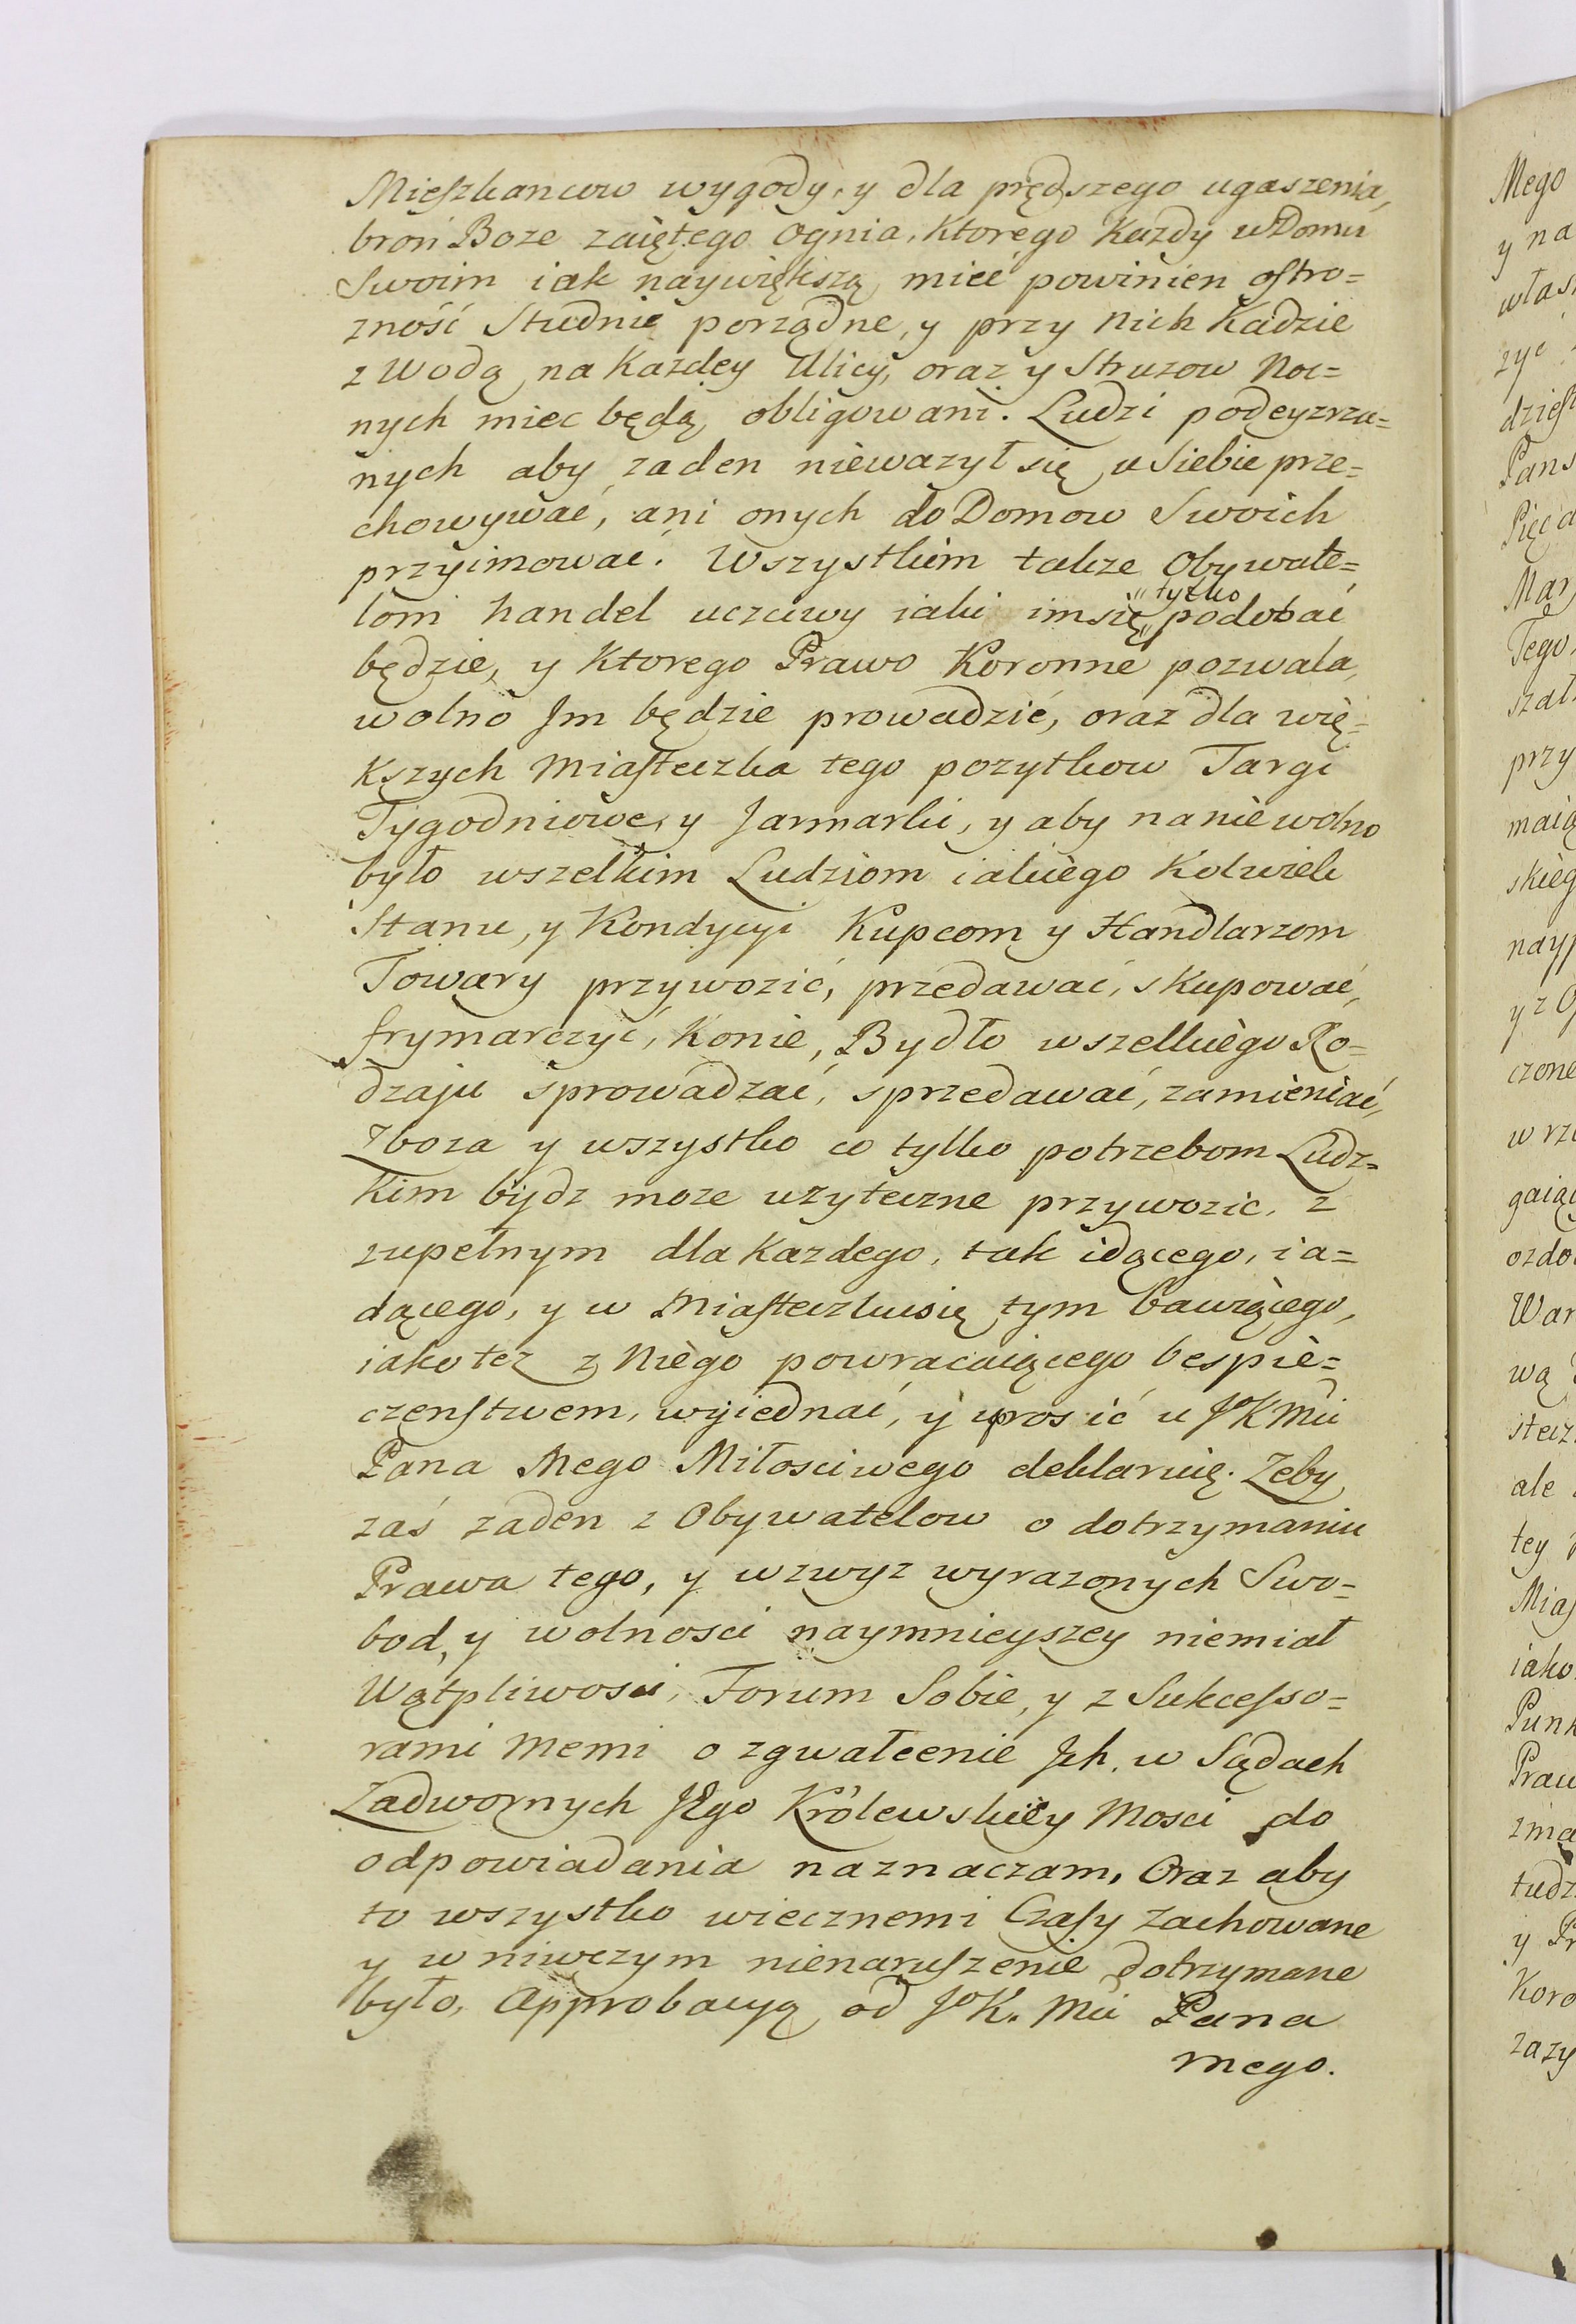 Mieszkancow wygody, y dla prędszego ugaszenia,
broń Boze zaiętego Ognia, Ktorego Kazdy w Domu
Swoim iak naywiększą mieć powinien ostro=
zność Studnie porządne, y przy Nich Kadzie
z Wodą na Kazdey Ulicy, oraz y Struzow Noc=
nych miec będą obligowani. Ludzi podeyzrza=
nych aby zaden niewazył się u Siebie prze=
chowywać, ani onych do Domow Swoich
przyimować. Wszystkim takze Obywate=
lom handel uczciwy iaki im się "tylko" podobać
będzie, y Ktorego Prawo Koronne pozwala,
wolno Jm będzie prowadzić, oraz dla wię=
Kszych Miasteczka tego pozytkow Targi
Tygodniowe, y Jarmarki, y aby na nie wolno
było wszelkim Ludziom iakiego Kolwiek
Stanu, y Kondycyi Kupcom y Handlarzom
Towary przywozić, przedawać, skupować,
frymarczyć, Konie, Bydło wszelkiego Ro=
dzaju sprowadzać, sprzedawać, zamieniać,
Zboza y wszystko co tylko potrzebom Ludz=
Kim bydz moze uzyteczne przywozic, z
zupełnym dla Kazdego, tak idącego, ia=
dącego, y w Miasteczku się tym bawiącego,
iako tez z Niego powracaiącego bespie=
czenstwem, wyiednać, y uprosić u JK Mci
Pana Mego Miłosciwego deklaruię. Zeby
zaś zaden z Obywatelow o dotrzymaniu
Prawa tego, y wzwyz wyrazonych Swo=
bod, y wolnosci naymnieyszey niemiał
Wątpliwosci, Forum Sobie, y z Sukcesso=
rami Memi o zgwałcenie Jch. w Sądach
Zadwornych JEgo Królewskiey Mosci do
odpowiadania naznaczam, Oraz aby
to wszystko wiecznemi Czasy Zachowane
y w niwczym nienaruszenie dotrzymane
było, Approbacyą od JK. Mci Pana
Mego.